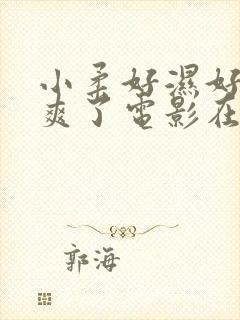 小柔好濕好
爽了電影在
郭海